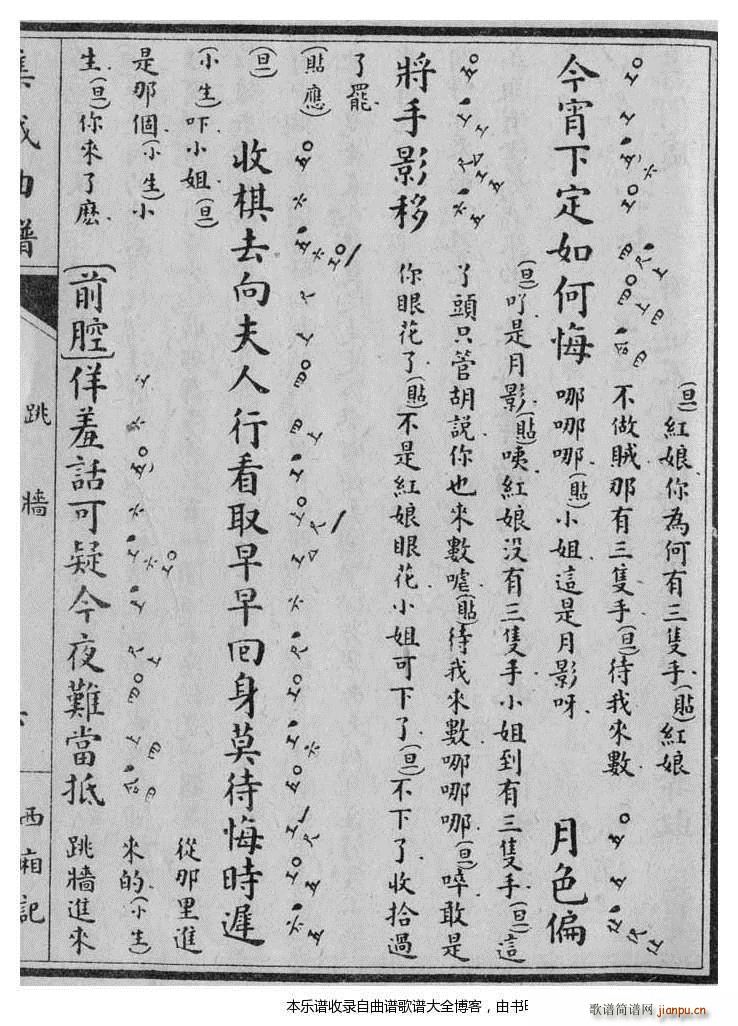 今宵下定如何悔
(旦)紅娘你為何有三隻手(貼)紅娘
不做賊那有三隻手(旦)待我來數
哪哪哪(貼)小姐這是月影呀
月色偏
將手影移
(旦)吖是月影(貼)咦紅娘没有三隻手小姐到有三隻手(旦)這
了頭只管胡説你也來數嘘(貼)待我來數哪哪哪(旦)啐敢是
你眼花了(貼)不是紅娘眼花小姐可下了(旦)不下了收拾過
了罷
(貼應)
(旦)
收棋去向夫人行看取早早回身莫待悔時遲
(小生)吓小姐(旦)
是那個(小生)小
生(旦)你來了麽
〔前腔〕佯羞話可疑今夜難當抵
從那里進
來的(小生)
跳牆進來
集成曲譜
跳牆
西廂記
本乐谱收录自曲谱歌谱大全博客，由书
歌谱简谱网
jianpu.cn